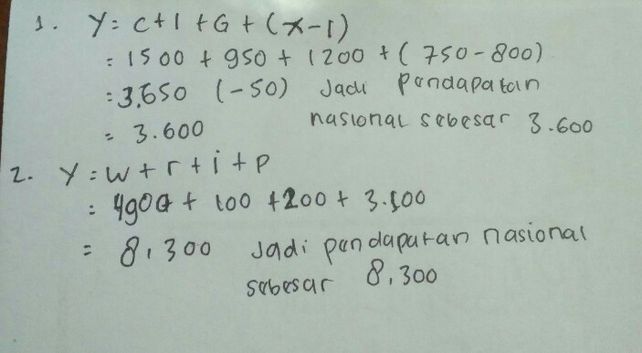 1. Y = C + I + G + (X - I)
= 1500 + 950 + 1200 + ( 750 - 800)
= 3.650 (-50) Jadi Pendapatan
= 3.600 nasional sebesar 3.600
2. Y = w + r + i + p
= 4900 + 100 + 200 + 3.100
= 8,300 Jadi pendapatan nasional
sebesar 8,300